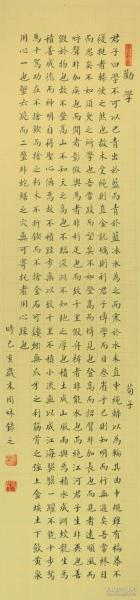 勸學
荀子
君子曰學不可以已青出於藍而青於藍冰水為之而寒於水木直中繩輮以為輪其曲中規雖有槁暴不
復挺者輮使之然也故木受繩則直金就礪則利君子博學而日參省乎己則知明而行無過矣吾嘗終日
而思矣不如須臾之所學也吾嘗跂而望矣不如登高之博見也登高而招臂非加長也而見者遠順風而
呼聲非加疾也而聞者彰假輿馬者非利足也而致千里假舟楫者非能水也而絕江河君子生非異也善
假於物也故不登高山不知天之高也不臨深谿不知地之厚也積土成山風雨興焉積水成淵蛟龍生焉
積善成德而神明自得聖心備焉故不積跬步無以至千里不積小流無以成江海騏驥一躍不能十步駑
馬十駕功在不捨鍥而捨之朽木不折鍥而不捨金石可鏤蚓無爪牙之利筋骨之強上食埃土下飲黃泉
用心一也蟹六跪而二螯非蛇鱔之穴無可寄托者用心躁也
時己亥歲末周妹錄之